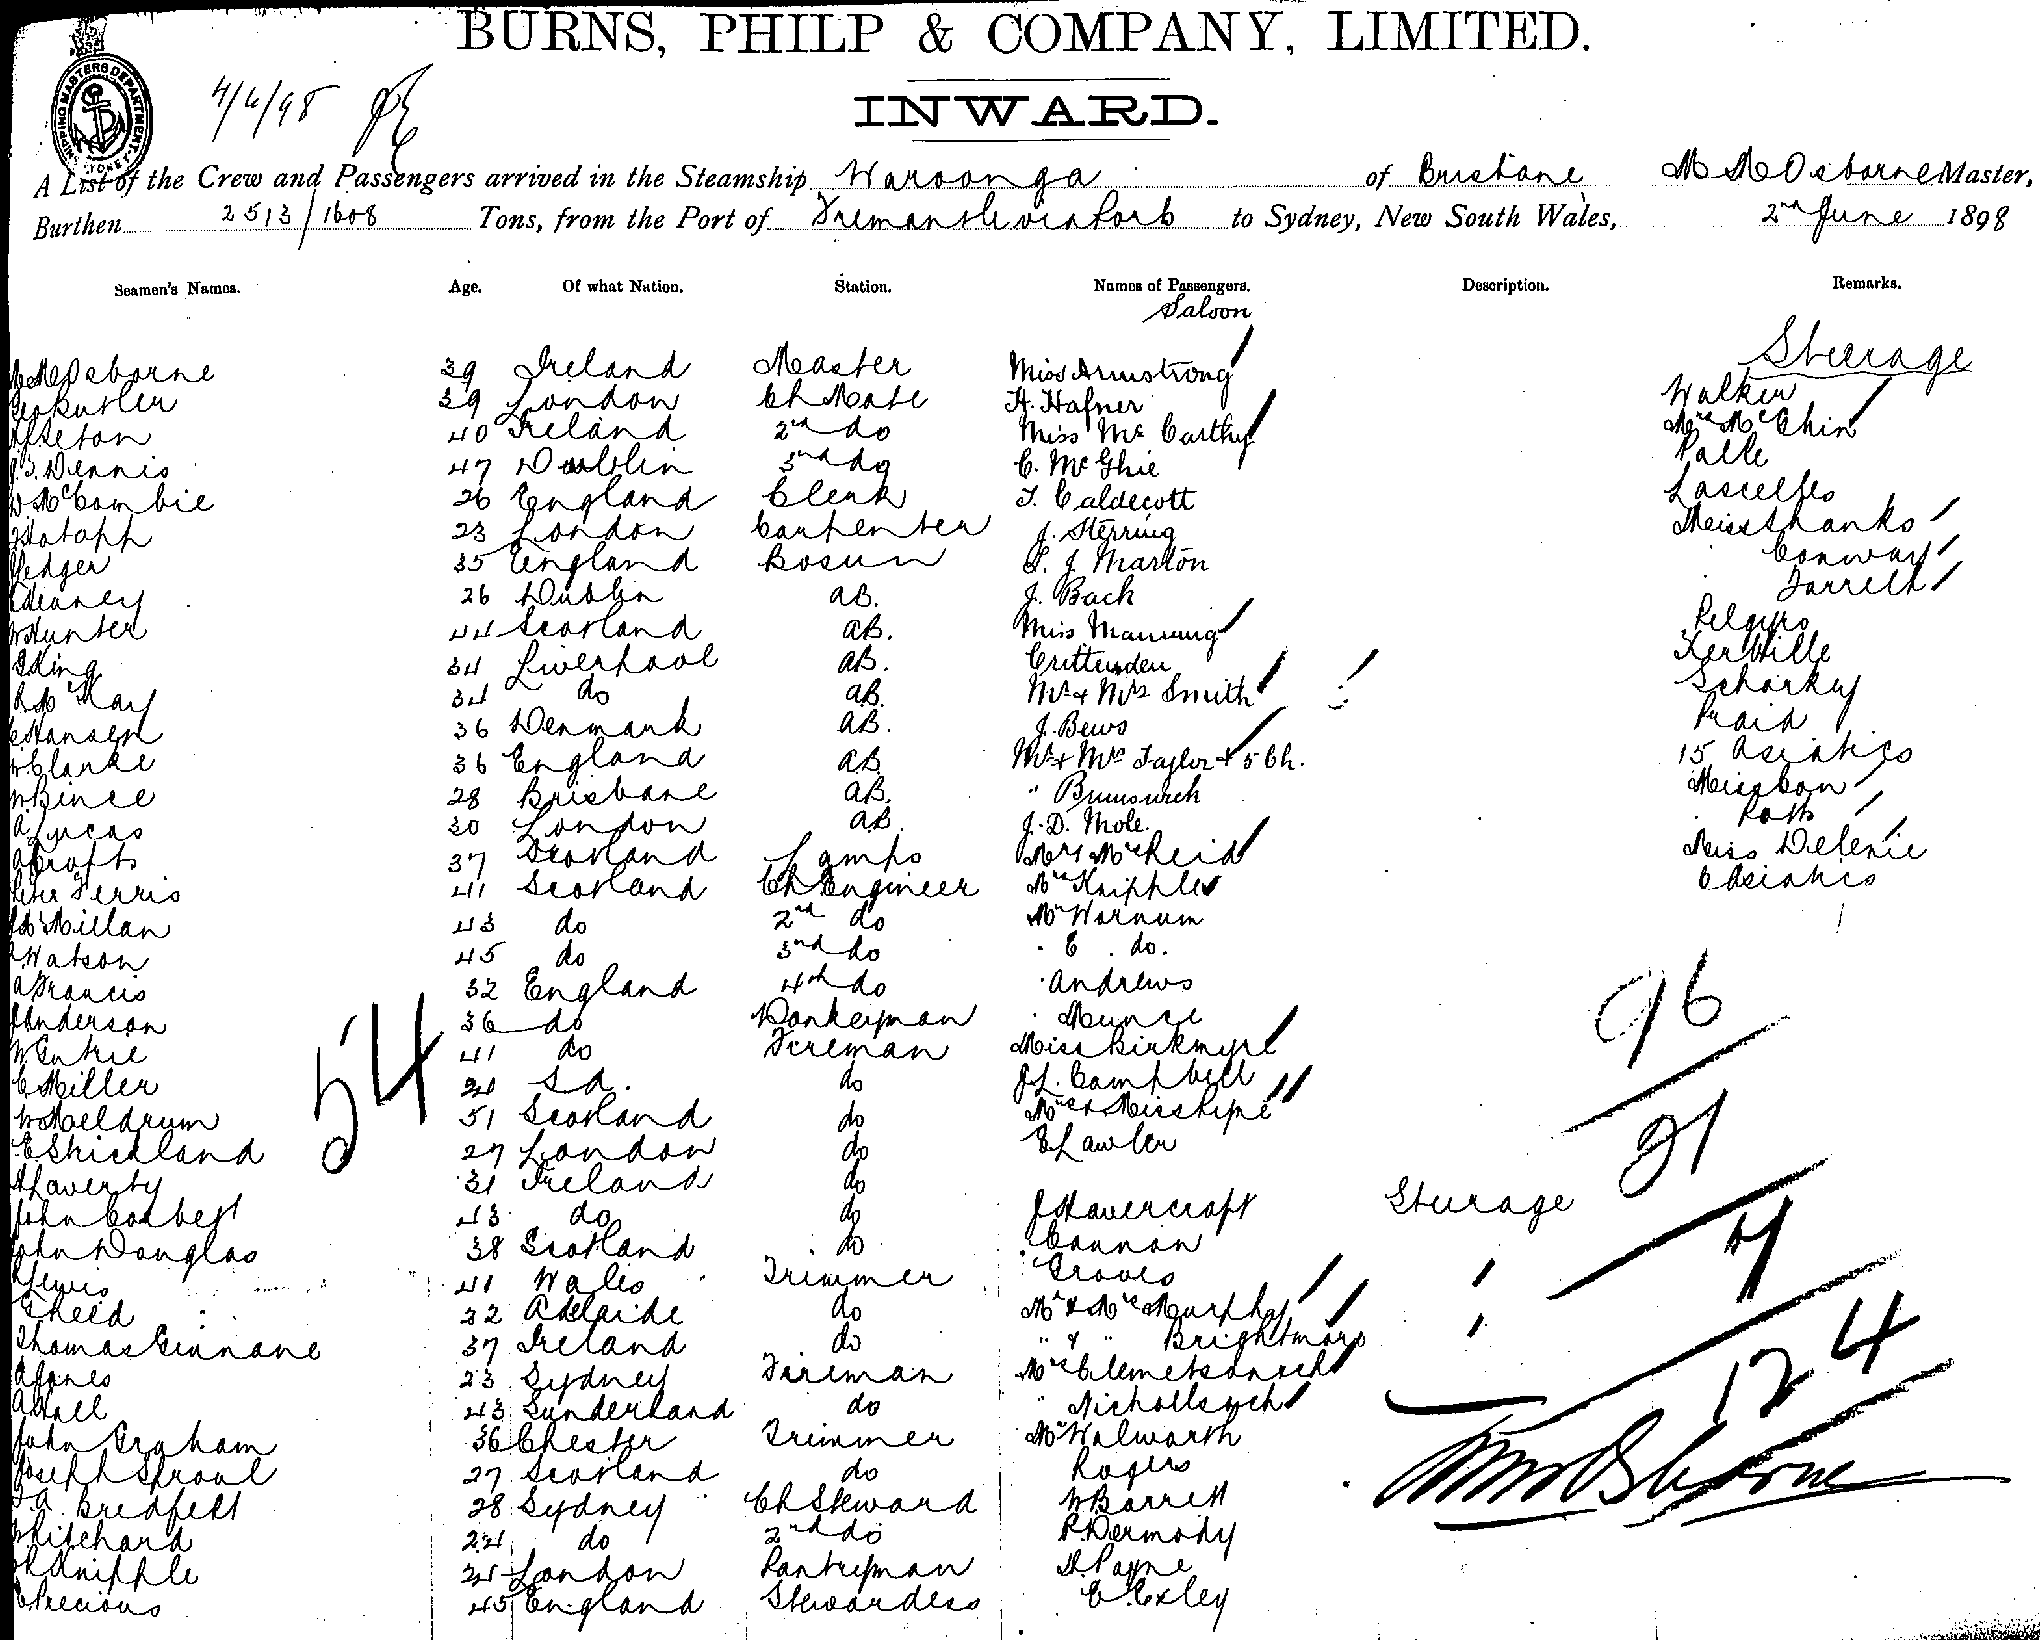 BURNS, PHILP & COMPANY, LIMITED.
INWARD.
SHIPPING MASTERS DEPARTMENT
4/6/98
A List of the Crew and Passengers arrived in the Steamship Waroonga of Brisbane M M Osborne Master,
Burthen 2513/1608 Tons, from the Port of Fremantle via Ports to Sydney, New South Wales, 2nd June 1898
Seamen's Names. Age. Of what Nation. Station. Names of Passengers. Description. Remarks.
Saloon
Steerage
Osborne 39 Ireland Master Miss Armstrong
Butler 39 London Ch Mate H. Hafner Walker
Seton 40 Ireland 2nd do Miss McCarthy Mrs McChin
Dennis 47 Dublin 3rd do C. McGhie
McCombie 26 England Clerk T. Caldecott Lascelles
23 London Carpenter J. Sterring Miss Shanks
Ledger 35 England Bosun S. J. Marton Conway
Deaney 26 Dublin AB. J. Bach Farrell
W Hunter 44 Scotland AB. Miss Manning
King 34 Liverpool AB. Crittenden
McKay 34 do AB Mr & Mrs Smith Scharkey
C Hansen 36 Denmark AB. J. Bews Praid
W Clarke 36 England AB Mr & Mrs Taylor & 5 Ch. 15 Asiatics
W Bince 28 Brisbane AB. " Miss Bon
A Lucas 30 London AB J. D. Mole Potts
A Crofts 37 Scotland Lamps Mr & Mrs Reid Miss Delenie
Ferris 41 Scotland Ch Engineer Mrs Knipple 6 Asiatics
McMillan 43 do 2nd do Mr Warnum
Watson 45 do 3rd do " E. do.
A Francis 32 England 4th do " Andrews
Anderson 36 do Donkeyman " Munce
W Gutrie 41 do Fireman Miss Birkmyre
C Miller 20 S.A. do J L. Campbell
W Meldrum 51 Scotland do
E Strickland 27 London do E Lawler
Laverty 31 Ireland do
John Corbett 43 do do J Havercroft Steerage
John Douglas 38 Scotland do Cannon
Lewis 41 Wales Trimmer Groves
Reid 22 Adelaide do Mr & Mrs Murphy
Thomas Ginnane 37 Ireland do " & " Brightmore
A Jones 23 Sydney Fireman Mrs Clemetson & ch
A Hall 43 Sunderland do " Nicholls & ch
John Graham 36 Chester Trimmer Mr Walworth
Joseph Sproul 27 Scotland do Rogers
Bredfelt 28 Sydney Ch Steward W Barrett
W Pitchard 24 do 2nd do P. Dermody
Knipple 21 London Pantryman D. Payne
E Precious 45 England Stewardess E. Exley
54
96
21
7
124
Osborne